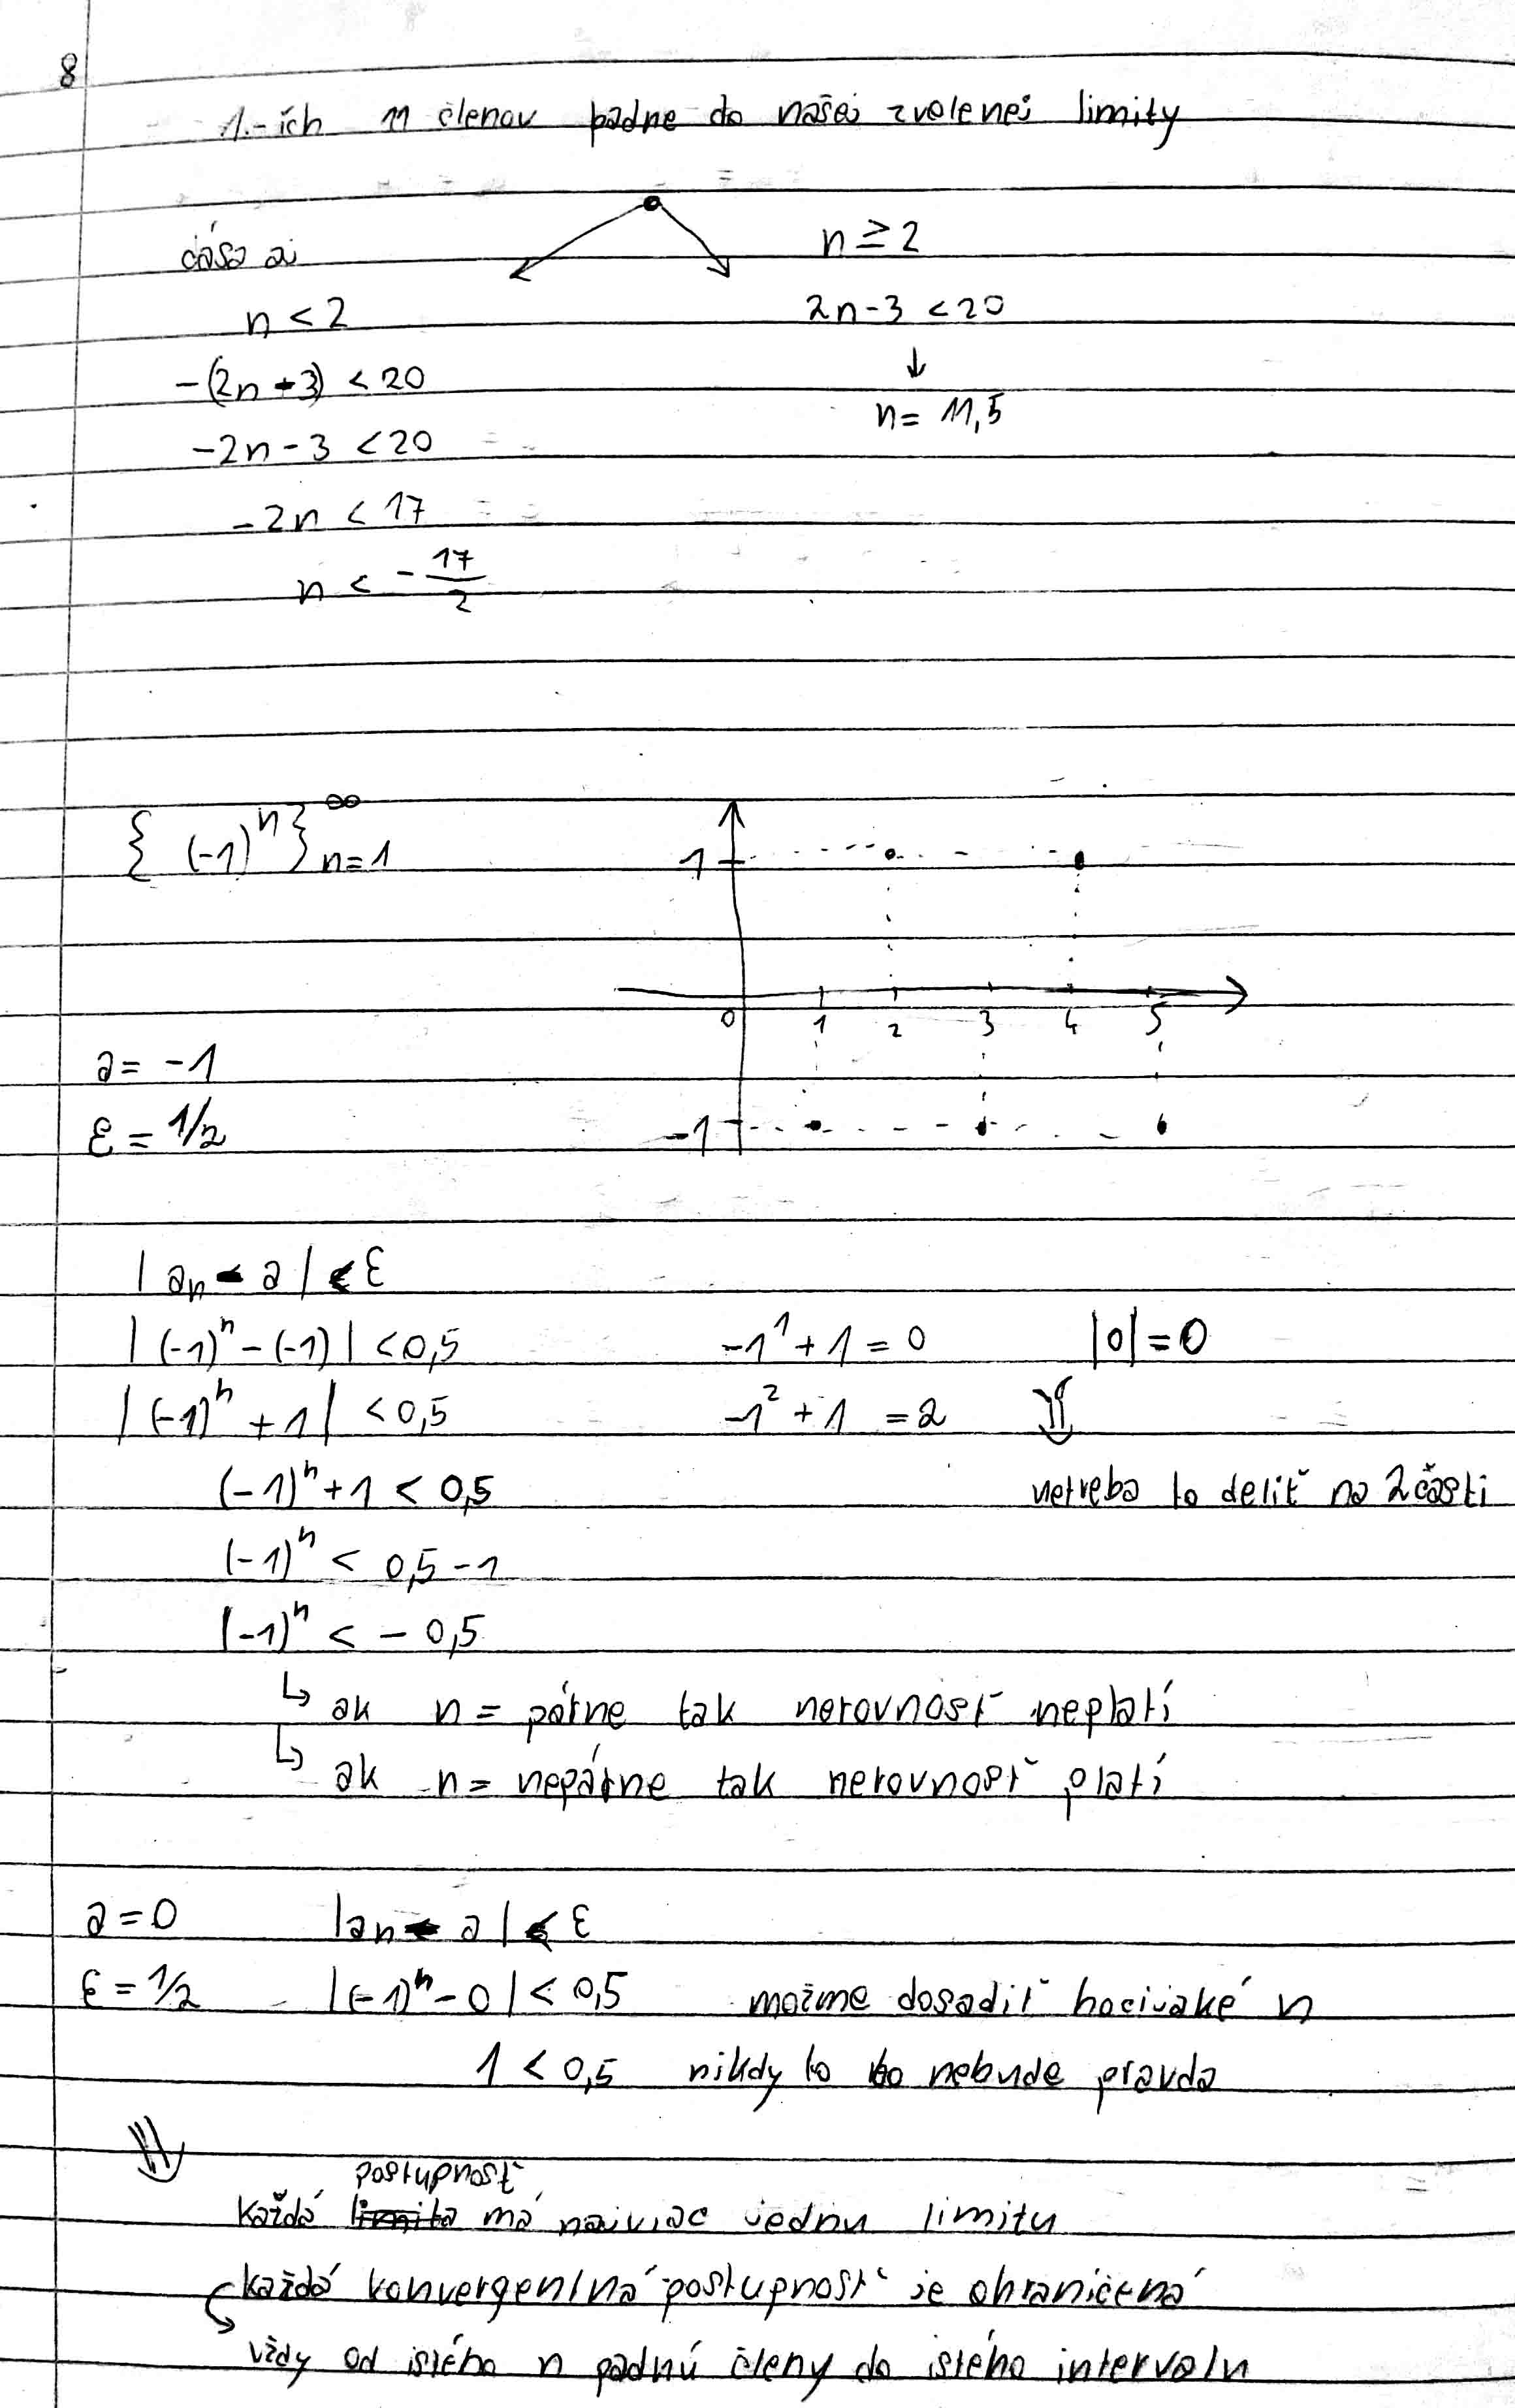 8
1.-ích 11 členov padne do našej zvolenej limity
n ≥ 2
n < 2
2n-3 < 20
-(2n-3) < 20
↓
n = 11,5
-2n-3 < 20
-2n < 17
n < -17/2
{(-1)^n}^∞ n=1
1
0 1 2 3 4 5
-1
a = -1
ε = 1/2
|an - a| < ε
|(-1)^n - (-1)| < 0,5 -1^1 + 1 = 0 |0| = 0
|(-1)^n + 1| < 0,5 -1^2 + 1 = 2 ⇓
(-1)^n + 1 < 0,5 netreba to deliť na 2 časti
(-1)^n < 0,5 - 1
(-1)^n < - 0,5
↳ ak n = párne tak nerovnosť neplatí
↳ ak n = nepárne tak nerovnosť platí
a = 0 |an - a| < ε
ε = 1/2 |(-1)^n - 0| < 0,5 možme dosadiť hocijaké n
1 < 0,5 nikdy to nebude pravda
⇓
postupnosť
každá limita má najviac jednu limitu
každá konvergentná postupnosť je ohraničená
vždy od istého n padnú členy do istého intervalu